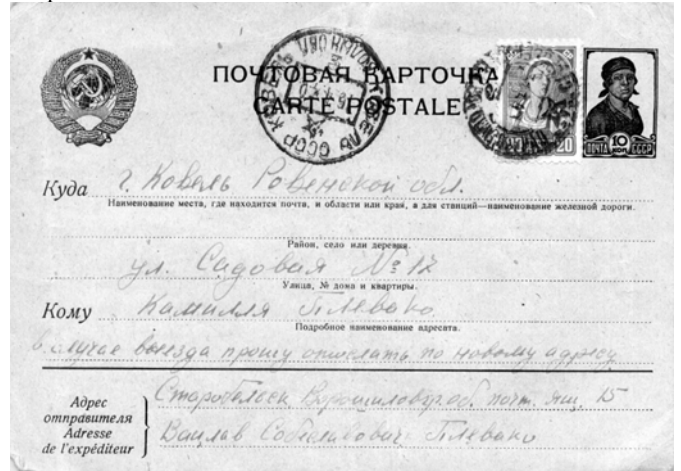 ПОЧТОВАЯ КАРТОЧКА
CARTE POSTALE
КОВЕЛЬ СССР
20
ПОЧТА 10 КОП СССР
Куда г. Ковель Ровенской обл.
Наименование места, где находится почта, и области или края, а для станций—наименование железной дороги.
Район, село или деревня.
ул. Садовая № 12
Улица, № дома и квартиры.
Кому Камилля Плевако
Подробное наименование адресата.
в случае выезда прошу отослать по новому адресу
Адрес отправителя
Adresse de l'expéditeur
Старобельск Ворошиловгр. об. почт. ящ. 15
Вацлав Плевако